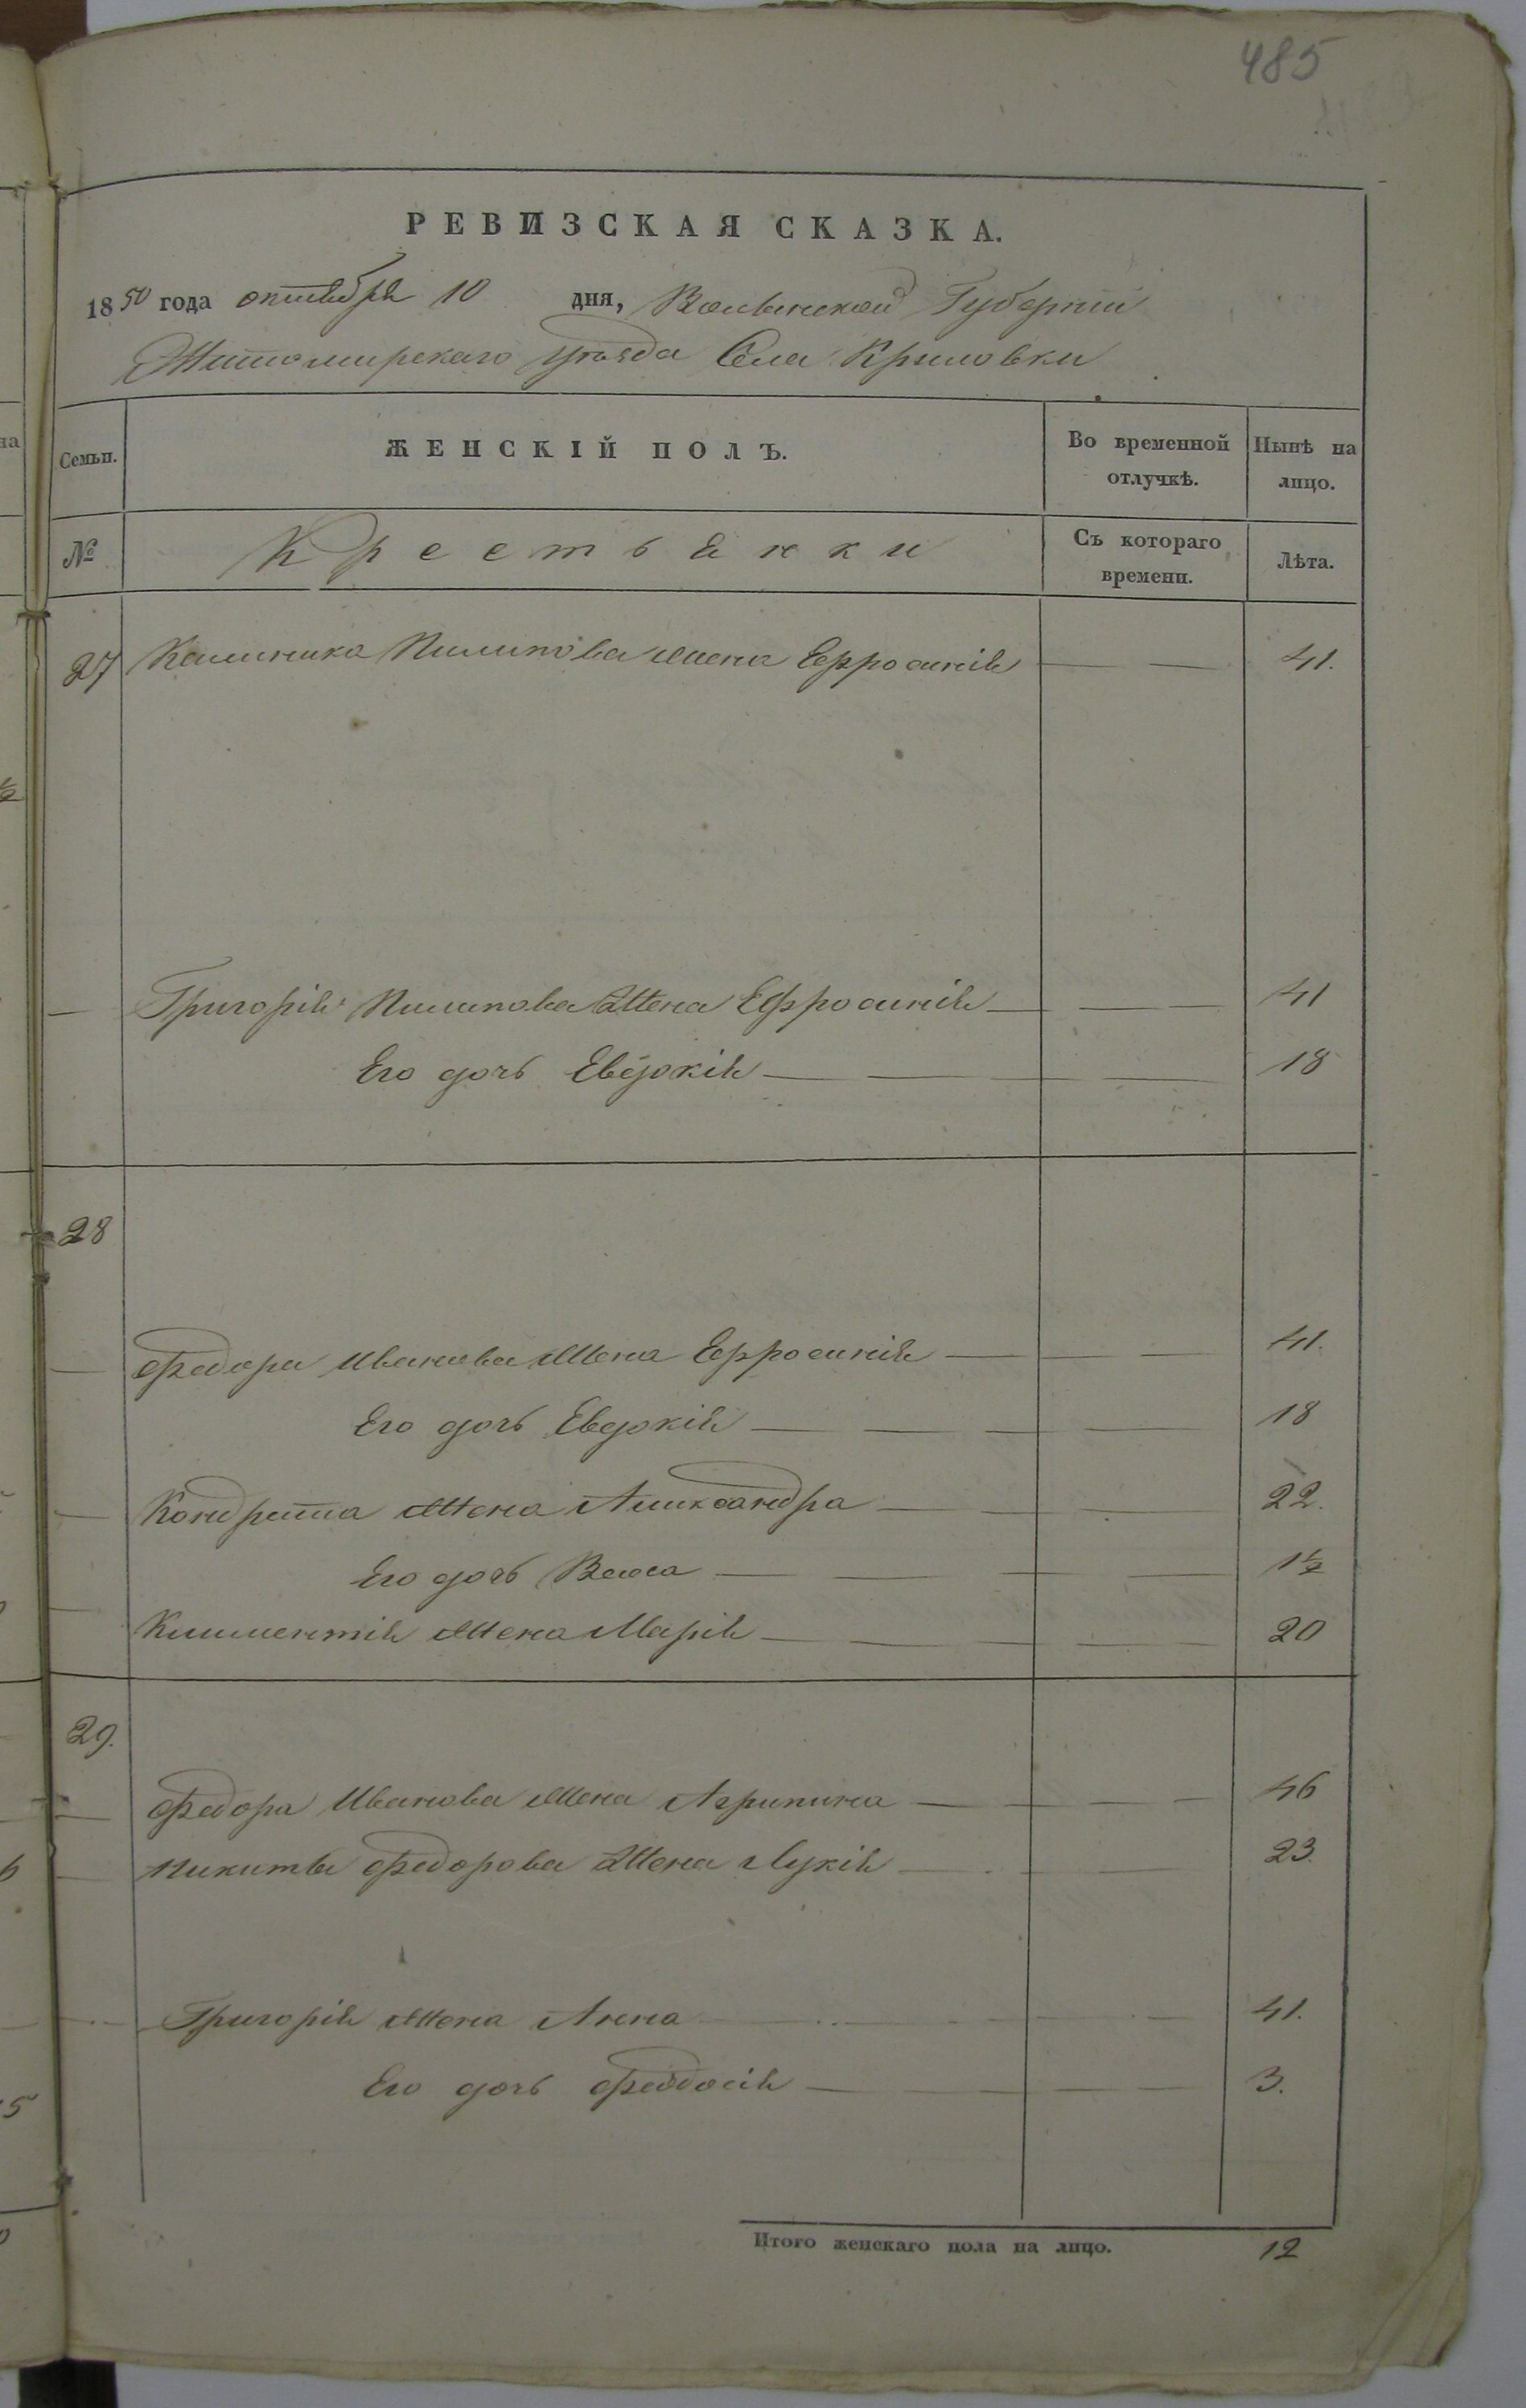 485
РЕВИЗСКАЯ СКАЗКА.
1850 года октября 10 дня, Волынской Губерніи
Житомирскаго уѣзда Села Криловки
Семьи. ЖЕНСКІЙ ПОЛЪ. Во временной отлучкѣ. Нынѣ на лицо.
№ Крестьянки Съ котораго времени. Лѣта.
27 Калиника Пилипова жена Ефросинія — — 41.
— Григорія Пилипова Жена Ефросинія — — — 41
Его дочь Евдокія — — — — 18
28
— Федора Иванова Жена Ефросинія — — — 41.
Его дочь Евдокія — — — — 18
— Кондрата Жена Александра — — — 22.
Его дочь Васса — — — — 1½
— Климентія Жена Марія — — — — 20
29.
— Федора Иванова Жена Агрипина — — — — 46
— Никиты Федорова Жена Лукія — — — 23.
— Григорія Жена Анна — — — — 41.
Его дочь Феодосія — — — — 3.
Итого женскаго пола на лицо. 12